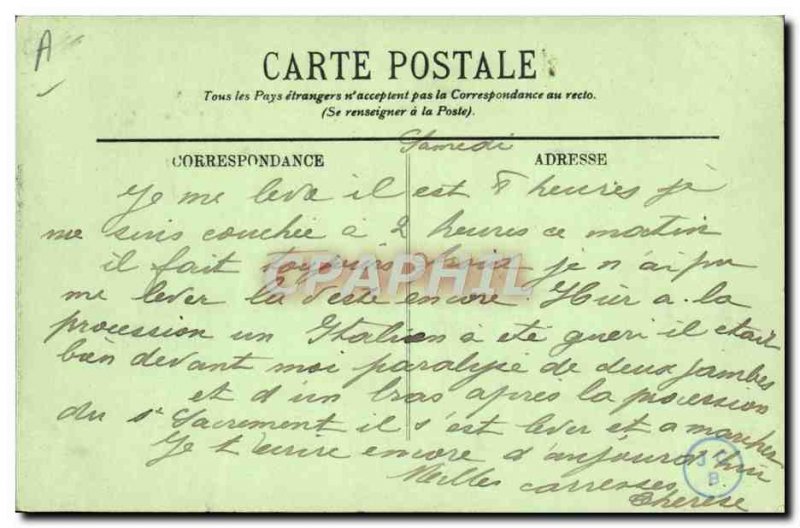 A
CARTE POSTALE
Tous les Pays étrangers n'acceptent pas la Correspondance au recto.
(Se renseigner à la Poste).
Samedi
CORRESPONDANCE
ADRESSE
Je me leve il est 8 heures je
me suis couchée à 2 heures ce matin
il fait toujours je n'ai pu
me lever la veste encore. Hier a la
procession un Italien a eté gueri il etait
bien devant moi paralysé de deux jambes
et d'un bras après la procession
du St Sacrement il s'est lever et a marcher
Je t'ecrire encore d'aujourd'hui
Milles carresses
Therese
CPAPHIL
B